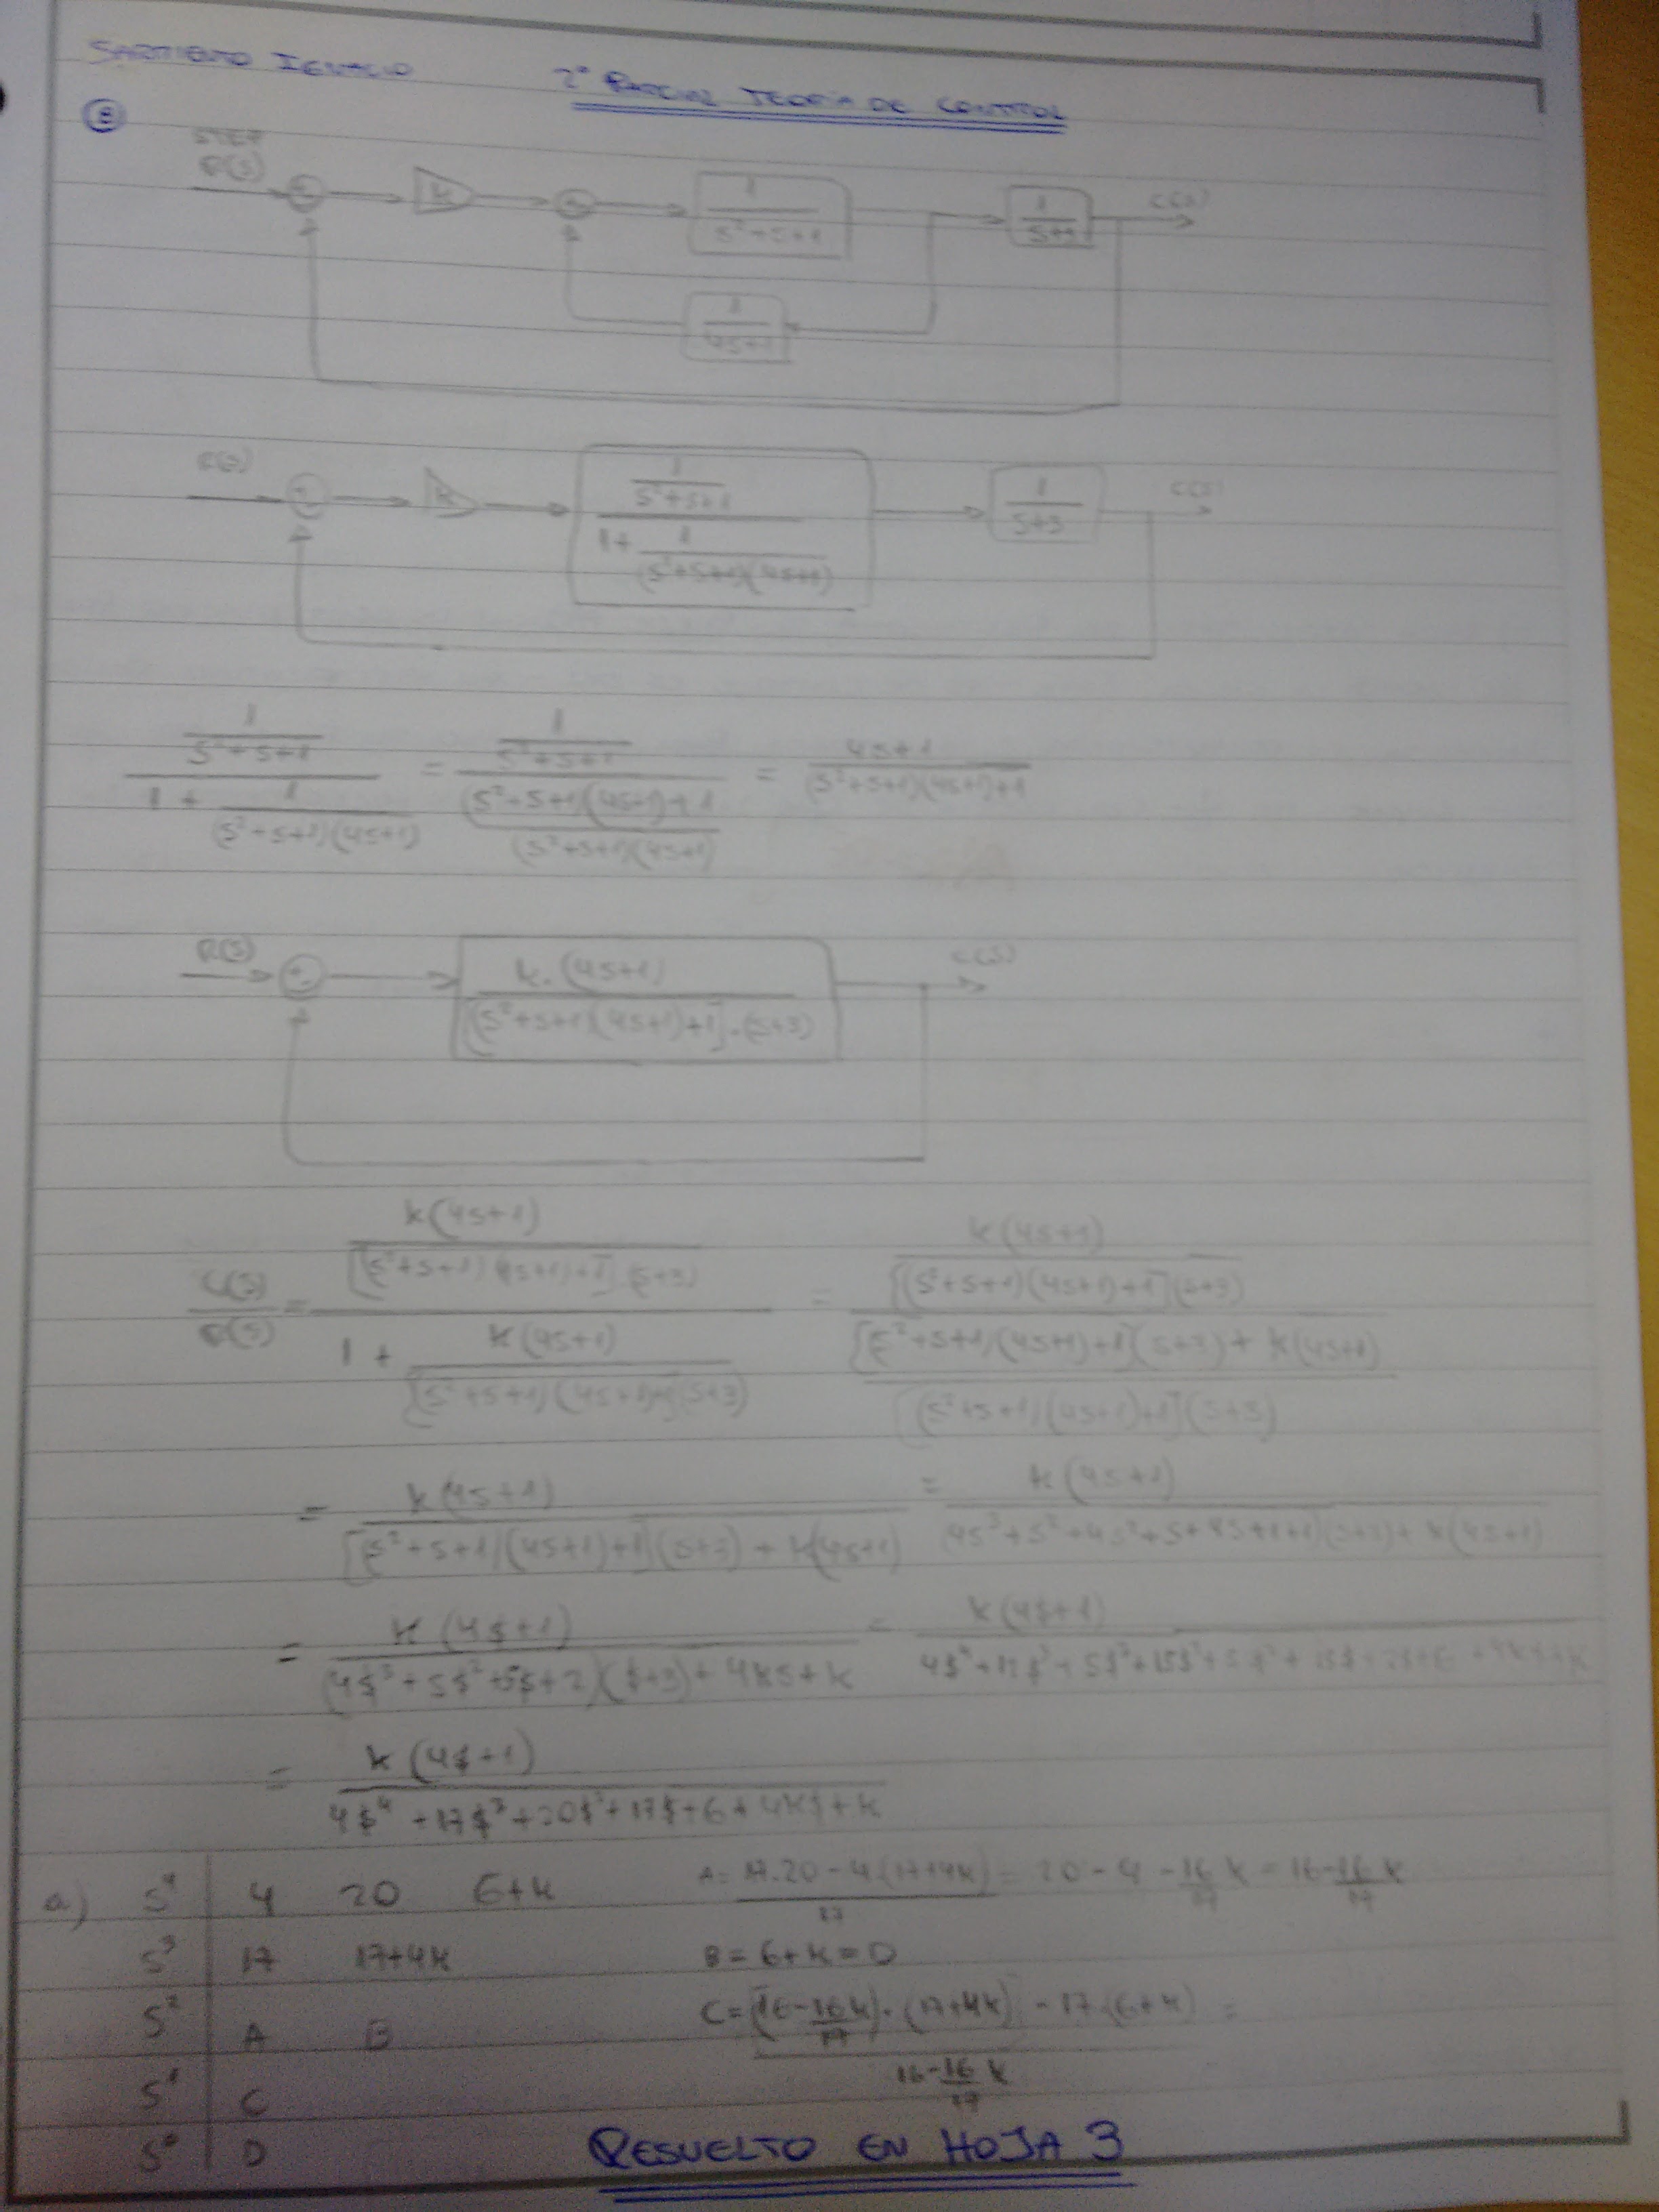 SARMIENTO IGNACIO 2° PARCIAL TEORIA DE CONTROL
B
STEP
R(s) + - K + - 1/(s²+s+1) 1/(s+3) C(s)
1/(4s+1)
R(s) + - K (1/(s²+s+1))/(1+1/((s²+s+1)(4s+1))) 1/(s+3) C(s)
(1/(s²+s+1))/(1+1/((s²+s+1)(4s+1))) = (1/(s²+s+1))/(((s²+s+1)(4s+1)+1)/((s²+s+1)(4s+1))) = (4s+1)/((s²+s+1)(4s+1)+1)
R(s) + - K.(4s+1)/([(s²+s+1)(4s+1)+1].(s+3)) C(s)
C(s)/R(s) = (K(4s+1)/([(s²+s+1)(4s+1)+1](s+3)))/(1+K(4s+1)/([(s²+s+1)(4s+1)+1](s+3))) = (K(4s+1)/([(s²+s+1)(4s+1)+1](s+3)))/(([(s²+s+1)(4s+1)+1](s+3)+K(4s+1))/([(s²+s+1)(4s+1)+1](s+3)))
= K(4s+1)/([(s²+s+1)(4s+1)+1](s+3)+K(4s+1)) = K(4s+1)/((4s³+s²+4s²+s+4s+1+1)(s+3)+K(4s+1))
= K(4s+1)/((4s³+5s²+5s+2)(s+3)+4Ks+K) = K(4s+1)/(4s⁴+12s³+5s³+15s²+5s²+15s+2s+6+4Ks+K)
= K(4s+1)/(4s⁴+17s³+20s²+17s+6+4Ks+K)
a) s⁴ 4 20 6+K A = (17.20-4.(17+4K))/17 = 20-4-16/17 K = 16-16/17 K
s³ 17 17+4K B = 6+K = D
s² A B C = ((16-16/17 K).(17+4K)-17.(6+K))/(16-16/17 K) =
s¹ C
s⁰ D
RESUELTO EN HOJA 3